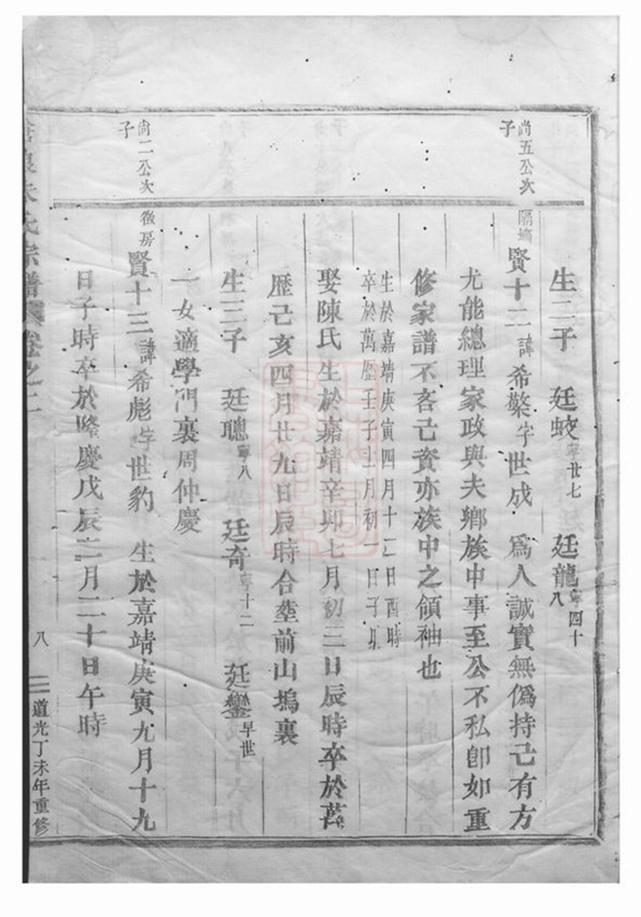 生二子　廷蛟寧廿七　廷龍寧四十八
尚五公次子
隔墻
賢十二諱希槃字世成　爲人誠實無僞持己有方
尤能總理家政與夫鄉族中事至公不私卽如重
修家譜不吝己資亦族中之領袖也
生於嘉靖庚寅四月十二日酉時
卒於萬歷壬子十二月初一日子
娶陳氏生於嘉靖辛卯七月初三日辰時卒於萬
歷己亥四月廿九日辰時合塟前山塢裏
生三子　廷聰寧八　廷奇寧十二　廷鑾早世
一女適學門裏周仲慶
尚二公次子
後房
賢十三諱希彪字世豹　生於嘉靖庚寅九月十九
日子時卒於隆慶戊辰二月二十日午時
氏宗譜　卷之二
八
道光丁未年重修